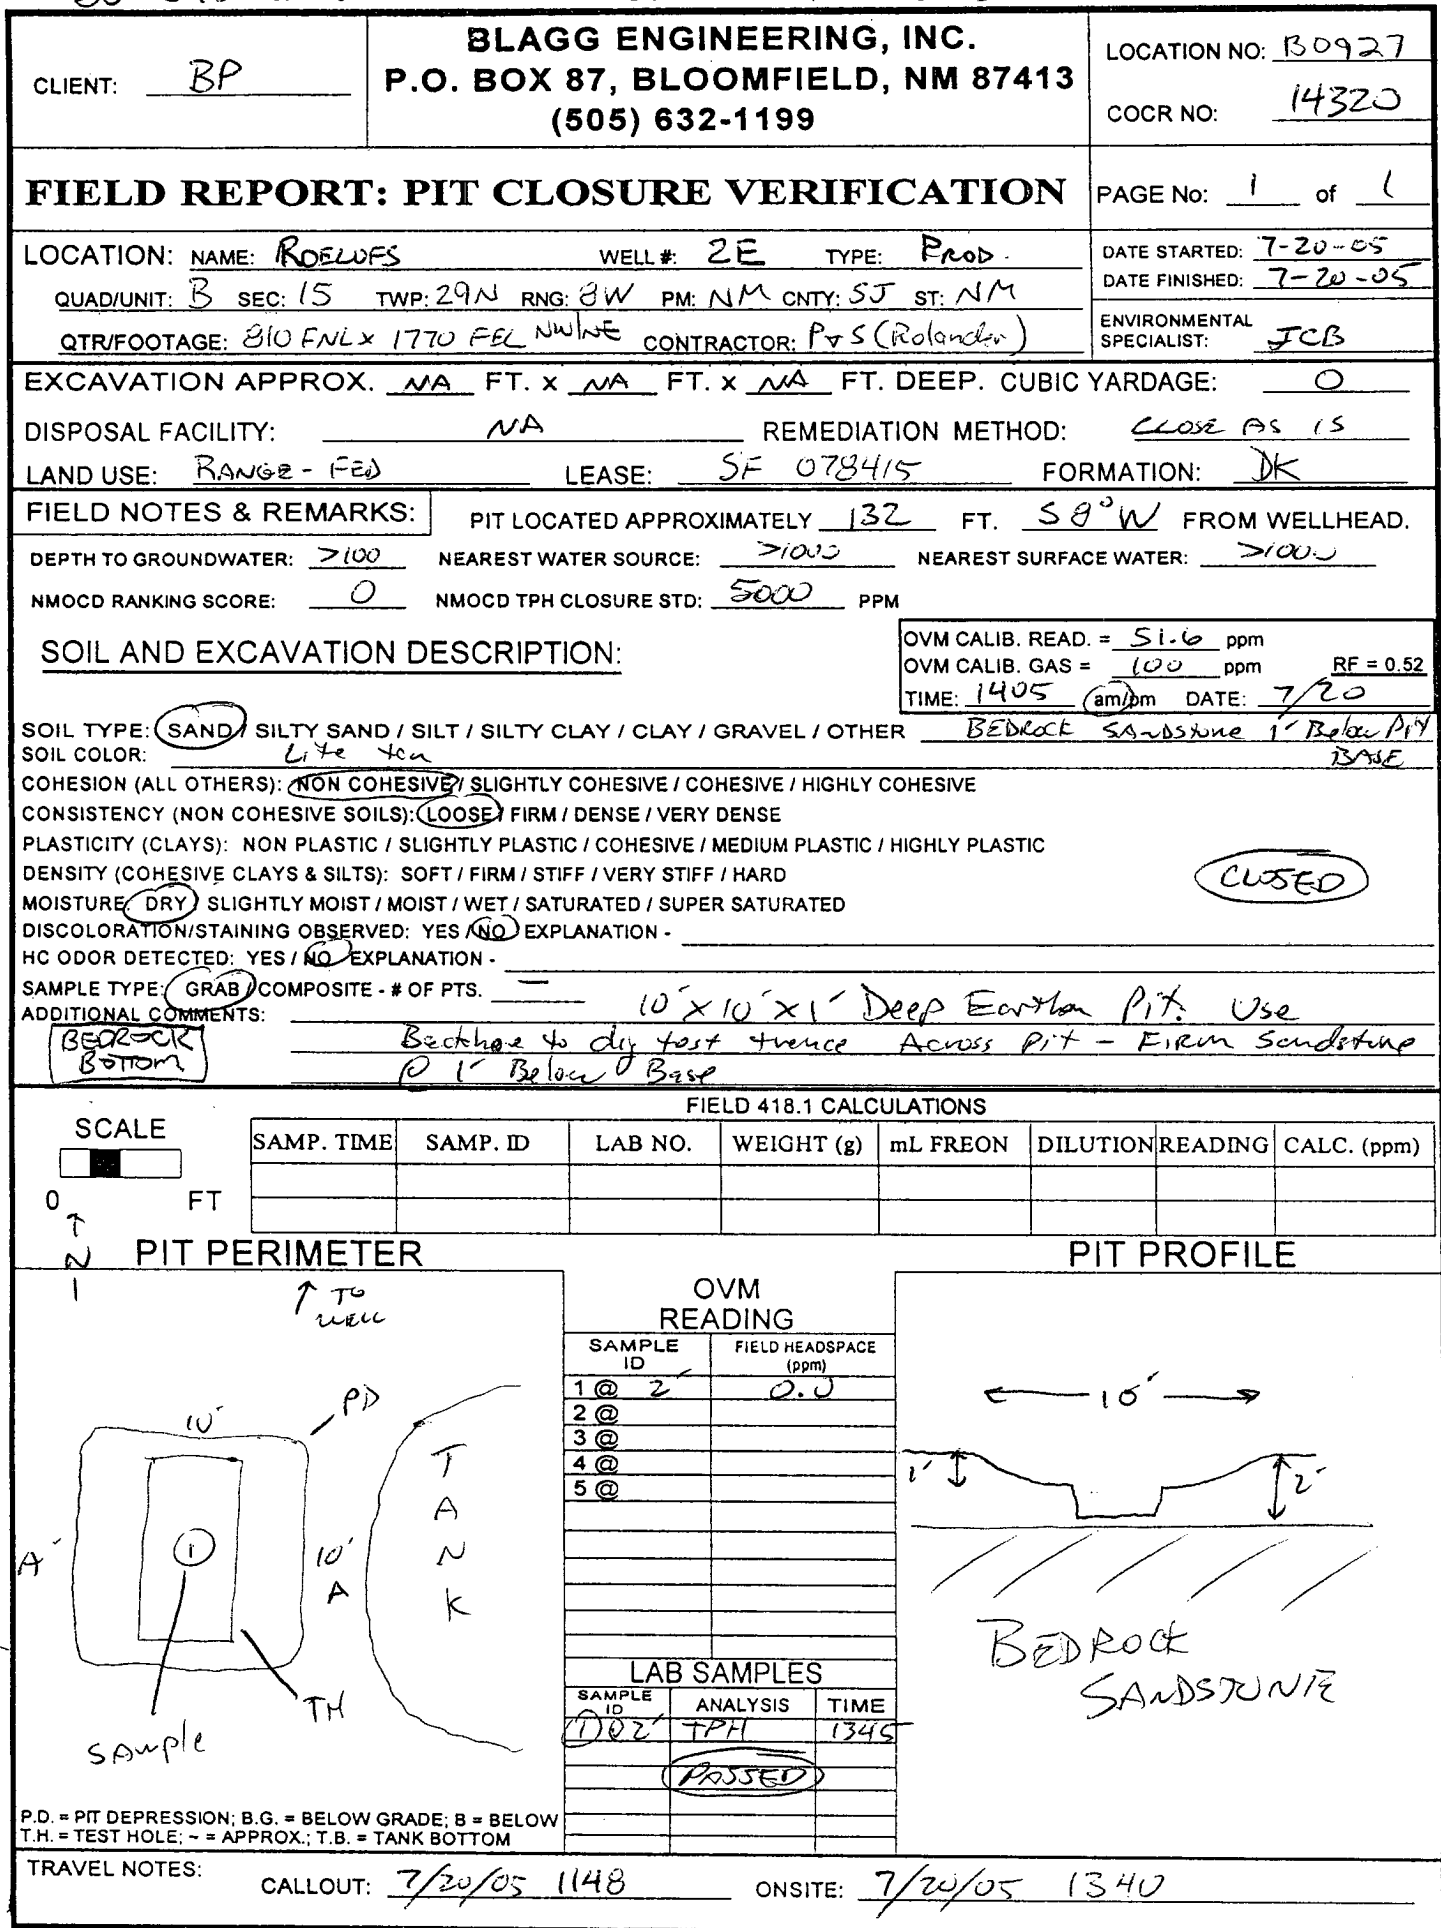 BLAGG ENGINEERING, INC.
CLIENT: BP
P.O. BOX 87, BLOOMFIELD, NM 87413
(505) 632-1199
LOCATION NO: B0927
COCR NO: 14320
FIELD REPORT: PIT CLOSURE VERIFICATION
PAGE No: 1 of 1
LOCATION: NAME: ROELOFS WELL #: 2E TYPE: PROD.
DATE STARTED: 7-20-05
DATE FINISHED: 7-20-05
QUAD/UNIT: B SEC: 15 TWP: 29N RNG: 8W PM: NM CNTY: SJ ST: NM
QTR/FOOTAGE: 810 FNL x 1770 FEL NW/NE CONTRACTOR: P & S (Rolander)
ENVIRONMENTAL
SPECIALIST: JCB
EXCAVATION APPROX. NA FT. x NA FT. x NA FT. DEEP. CUBIC YARDAGE: 0
DISPOSAL FACILITY: NA REMEDIATION METHOD: CLOSE AS IS
LAND USE: RANGE - FED LEASE: SF 078415 FORMATION: DK
FIELD NOTES & REMARKS: PIT LOCATED APPROXIMATELY 132 FT. S8°W FROM WELLHEAD.
DEPTH TO GROUNDWATER: >100 NEAREST WATER SOURCE: >1000 NEAREST SURFACE WATER: >1000
NMOCD RANKING SCORE: 0 NMOCD TPH CLOSURE STD: 5000 PPM
SOIL AND EXCAVATION DESCRIPTION:
OVM CALIB. READ. = 51.6 ppm
OVM CALIB. GAS = 100 ppm RF = 0.52
TIME: 1405 am/pm DATE: 7/20
SOIL TYPE: SAND / SILTY SAND / SILT / SILTY CLAY / CLAY / GRAVEL / OTHER BEDROCK SANDSTONE 1' Below Pit
BASE
SOIL COLOR: Lite tan
COHESION (ALL OTHERS): NON COHESIVE / SLIGHTLY COHESIVE / COHESIVE / HIGHLY COHESIVE
CONSISTENCY (NON COHESIVE SOILS): LOOSE / FIRM / DENSE / VERY DENSE
PLASTICITY (CLAYS): NON PLASTIC / SLIGHTLY PLASTIC / COHESIVE / MEDIUM PLASTIC / HIGHLY PLASTIC
DENSITY (COHESIVE CLAYS & SILTS): SOFT / FIRM / STIFF / VERY STIFF / HARD
CLOSED
MOISTURE: DRY / SLIGHTLY MOIST / MOIST / WET / SATURATED / SUPER SATURATED
DISCOLORATION/STAINING OBSERVED: YES / NO EXPLANATION -
HC ODOR DETECTED: YES / NO EXPLANATION -
SAMPLE TYPE: GRAB / COMPOSITE - # OF PTS. —
ADDITIONAL COMMENTS: 10' x 10' x 1' Deep Earthen Pit. Use
BEDROCK
BOTTOM
Backhoe to dig test trence Across Pit - FIRM Sandstone
@ 1' Below Base
FIELD 418.1 CALCULATIONS
SCALE
0 FT
SAMP. TIME SAMP. ID LAB NO. WEIGHT (g) mL FREON DILUTION READING CALC. (ppm)
N
PIT PERIMETER
↑ TO
WELL
10'
PD
TANK
A'
1
10'
A
TH
SAMPLE
P.D. = PIT DEPRESSION; B.G. = BELOW GRADE; B = BELOW
T.H. = TEST HOLE; ~ = APPROX.; T.B. = TANK BOTTOM
OVM
READING
SAMPLE ID FIELD HEADSPACE (ppm)
1 @ 2' 0.0
2 @
3 @
4 @
5 @
LAB SAMPLES
SAMPLE ID ANALYSIS TIME
1 @ 2' TPH 1345
PASSED
PIT PROFILE
10'
1'
2'
BEDROCK
SANDSTONE
TRAVEL NOTES: CALLOUT: 7/20/05 1148 ONSITE: 7/20/05 1340